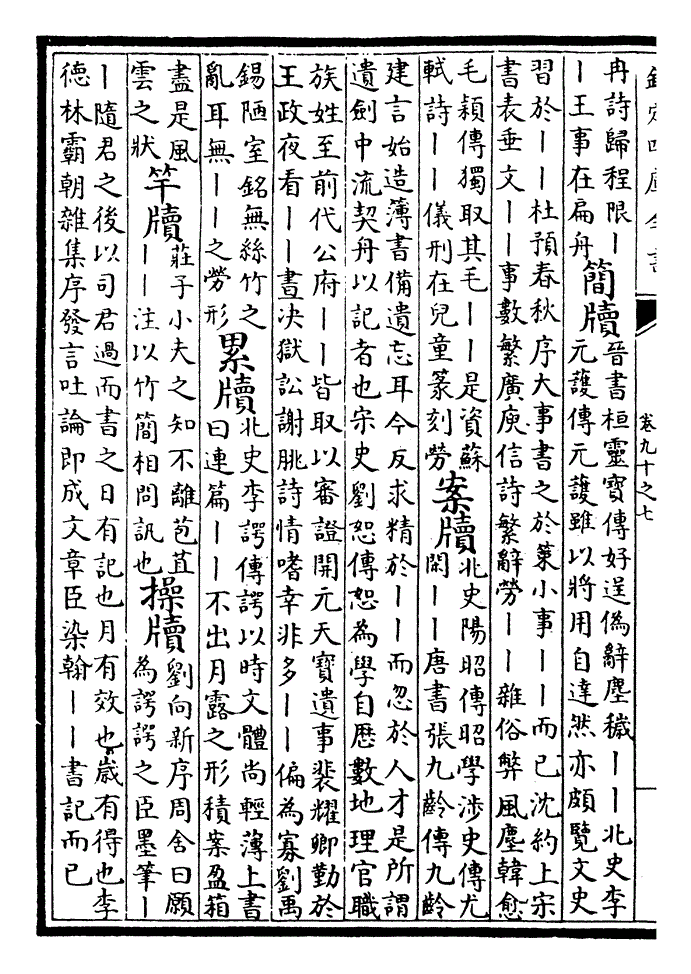 欽定四庫全書
卷九十之七
冉詩歸程限丨
丨王事在扁舟
簡牘
晉書桓靈寶傳好逞偽辭塵穢丨丨北史李
元護傳元護雖以將用自達然亦頗覽文史
習於丨丨杜預春秋序大事書之於策小事丨丨而已沈約上宋
書表垂文丨丨事數繁廣庾信詩繁辭勞丨丨雜俗弊風塵韓愈
毛穎傳獨取其毛丨丨是資蘇
軾詩丨丨儀刑在兒童篆刻勞
案牘
北史陽昭傳昭學涉史傳尤
閑丨丨唐書張九齡傳九齡
建言始造簿書備遺忘耳今反求精於丨丨而忽於人才是所謂
遺劍中流契舟以記者也宋史劉恕傳恕為學自歷數地理官職
族姓至前代公府丨丨皆取以審證開元天寶遺事裴耀卿勤於
王政夜看丨丨晝决獄訟謝朓詩情嗜幸非多丨丨偏為寡劉禹
錫陋室銘無絲竹之
亂耳無丨丨之勞形
累牘
北史李諤傳諤以時文體尚輕薄上書
曰連篇丨丨不出月露之形積案盈箱
盡是風
雲之狀
竿牘
莊子小夫之知不離苞苴
丨丨注以竹簡相問訊也
操牘
劉向新序周舍曰願
為諤諤之臣墨筆丨
丨隨君之後以司君過而書之日有記也月有效也歲有得也李
德林霸朝雜集序發言吐論即成文章臣染翰丨丨書記而已